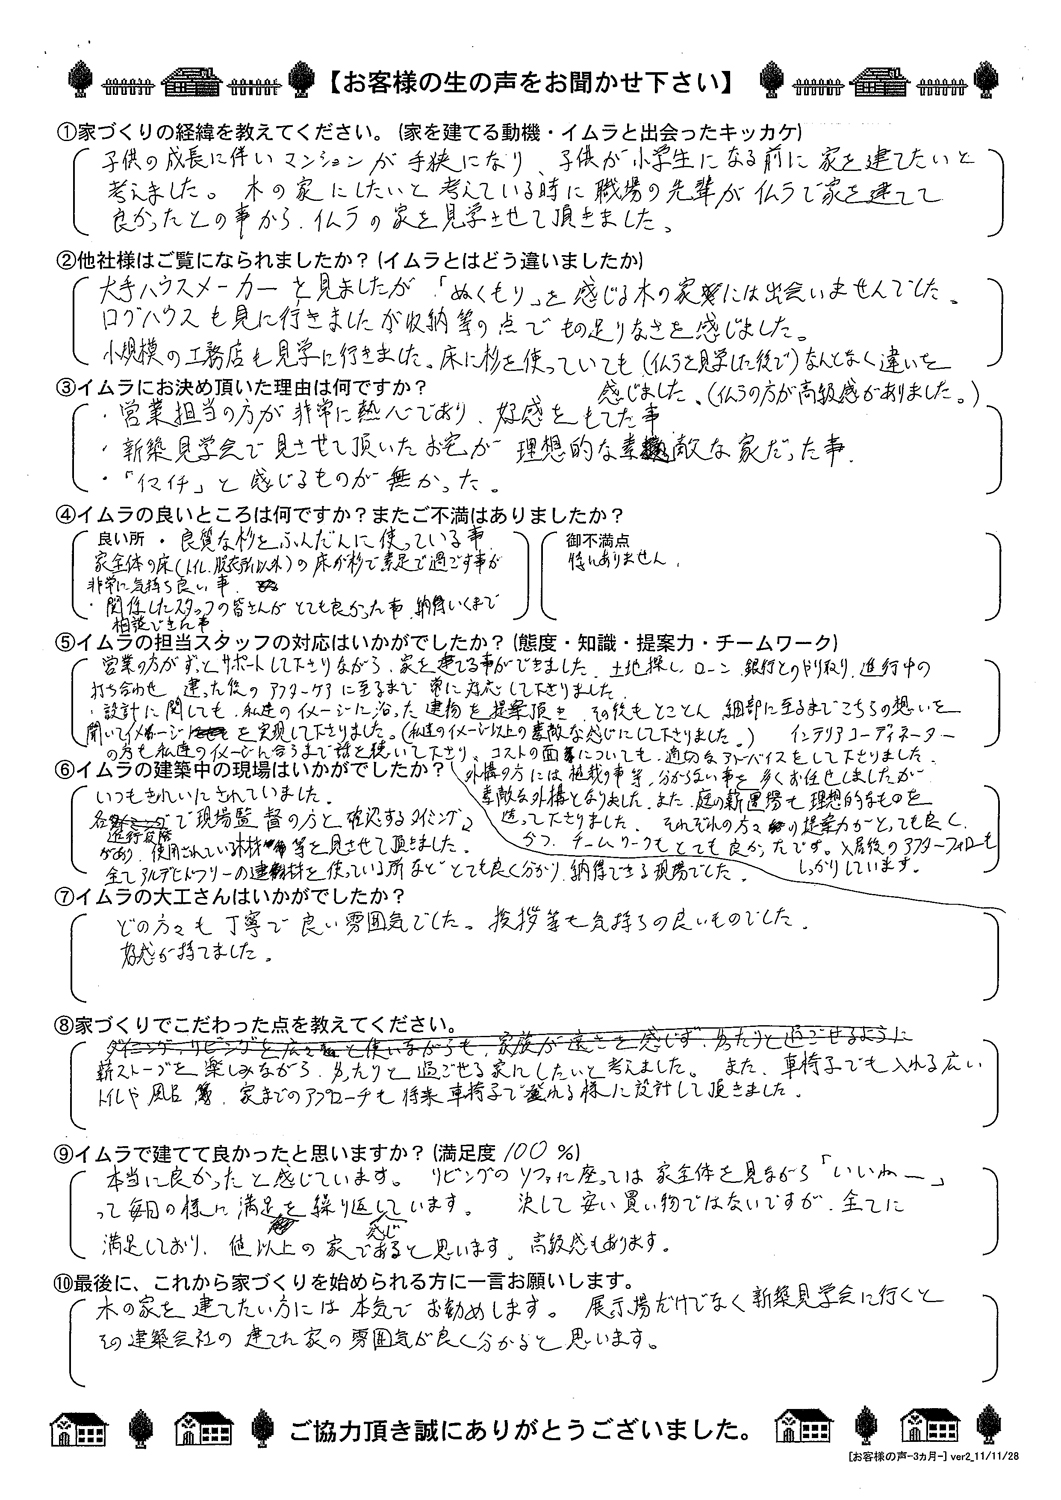 【お客様の生の声をお聞かせ下さい】
①家づくりの経緯を教えてください。(家を建てる動機・イムラと出会ったキッカケ)
子供の成長に伴いマンションが手狭になり、子供が小学生になる前に家を建てたいと
考えました。木の家にしたいと考えている時に職場の先輩がイムラで家を建てて
良かったとの事から、イムラの家を見学させて頂きました。
②他社様はご覧になられましたか？(イムラとはどう違いましたか)
大手ハウスメーカーを見ましたが、「ぬくもり」を感じる木の家には出会いませんでした。
ログハウスも見に行きましたが収納等の点でもの足りなさを感じました。
小規模の工務店も見学に行きました。床に杉を使っていても(イムラを見学した後で)なんとなく違いを
感じました。(イムラの方が高級感がありました。)
③イムラにお決め頂いた理由は何ですか？
・営業担当の方が非常に熱心であり、好感をもてた事
・新築見学会で見させて頂いたお宅が理想的な素敵な家だった事。
・「イマイチ」と感じるものが無かった。
④イムラの良いところは何ですか？またご不満はありましたか？
良い所・良質な杉をふんだんに使っている事
家全体の床(トイレ、脱衣所以外)の床が杉で素足で過ごす事が
非常に気持ち良い事。
・関係したスタッフの皆さんがとても良かった事、納得いくまで
相談できた事
御不満点
特にありません。
⑤イムラの担当スタッフの対応はいかがでしたか？(態度・知識・提案力・チームワーク)
営業の方がずっとサポートして下さりながら、家を建てる事ができました。土地探し、ローン、銀行とのやり取り、進行中の
打ち合わせ、建った後のアフターケアに至るまで常に対応して下さりました。
・設計に関しても、私達のイメージに沿った建物を提案頂き、その後もとことん細部に至るまでこちらの想いを
聞いてイメージを実現して下さりました。(私達のイメージ以上の素敵な感じにして下さりました。) インテリアコーディネーター
の方も私達のイメージに合うまで話を聴いて下さり、コストの面についても、適切なアドバイスをして下さりました。
外構の方には植栽の事等、分からない事を多くお任せしましたが
素敵な外構となりました。また、庭の薪置場も理想的なものを
造って下さりました。それぞれの方々の提案力がとっても良く、
かつ、チームワークもとても良かったです。入居後のアフターフォローも
しっかりしています。
⑥イムラの建築中の現場はいかがでしたか？
いつもきれいにされていました。
各進行段階で現場監督の方と確認するタイミング
があり、使用されている木材等を見させて頂きました。
全てアルデヒドフリーの建材を使っている所などとても良く分かり、納得できる現場でした。
⑦イムラの大工さんはいかがでしたか？
どの方々も丁寧で良い雰囲気でした。挨拶等も気持ちの良いものでした。
好感が持てました。
⑧家づくりでこだわった点を教えてください。
ダイニング、リビングを広々と使いながらも、家族が遠さを感じず、ゆったりと過ごせるように
薪ストーブを楽しみながら、ゆったりと過ごせる家にしたいと考えました。また、車椅子でも入れる広い
トイレや風呂等、家までのアプローチも将来車椅子で登れる様に設計して頂きました。
⑨イムラで建てて良かったと思いますか？(満足度 100 %)
本当に良かったと感じています。リビングのソファに座っては家全体を見ながら「いいねー」
って毎日の様に満足を繰り返しています。決して安い買い物ではないですが、全てに
満足しており、値以上の家であると感じ思います。高級感もあります。
⑩最後に、これから家づくりを始められる方に一言お願いします。
木の家を建てたい方には本気でお勧めします。展示場だけでなく新築見学会に行くと
その建築会社の建てた家の雰囲気が良く分かると思います。
ご協力頂き誠にありがとうございました。
[お客様の声-3カ月-] ver2_11/11/28